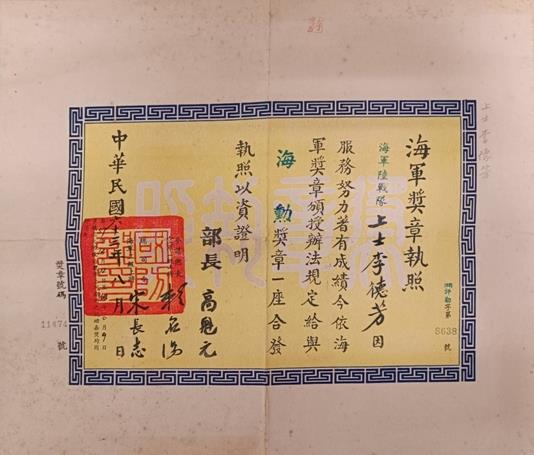 海軍獎章執照
海軍陸戰隊 上士李德芳因
服務努力著有成績今依海
軍獎章頒授辦法規定給與
海勳獎章一座合發
執照以資證明
部長 高魁元
賴名湯
宋長志
中華民國六十三年八月 日
字第
8638
號
獎章號碼
11474
號
上士李德芳